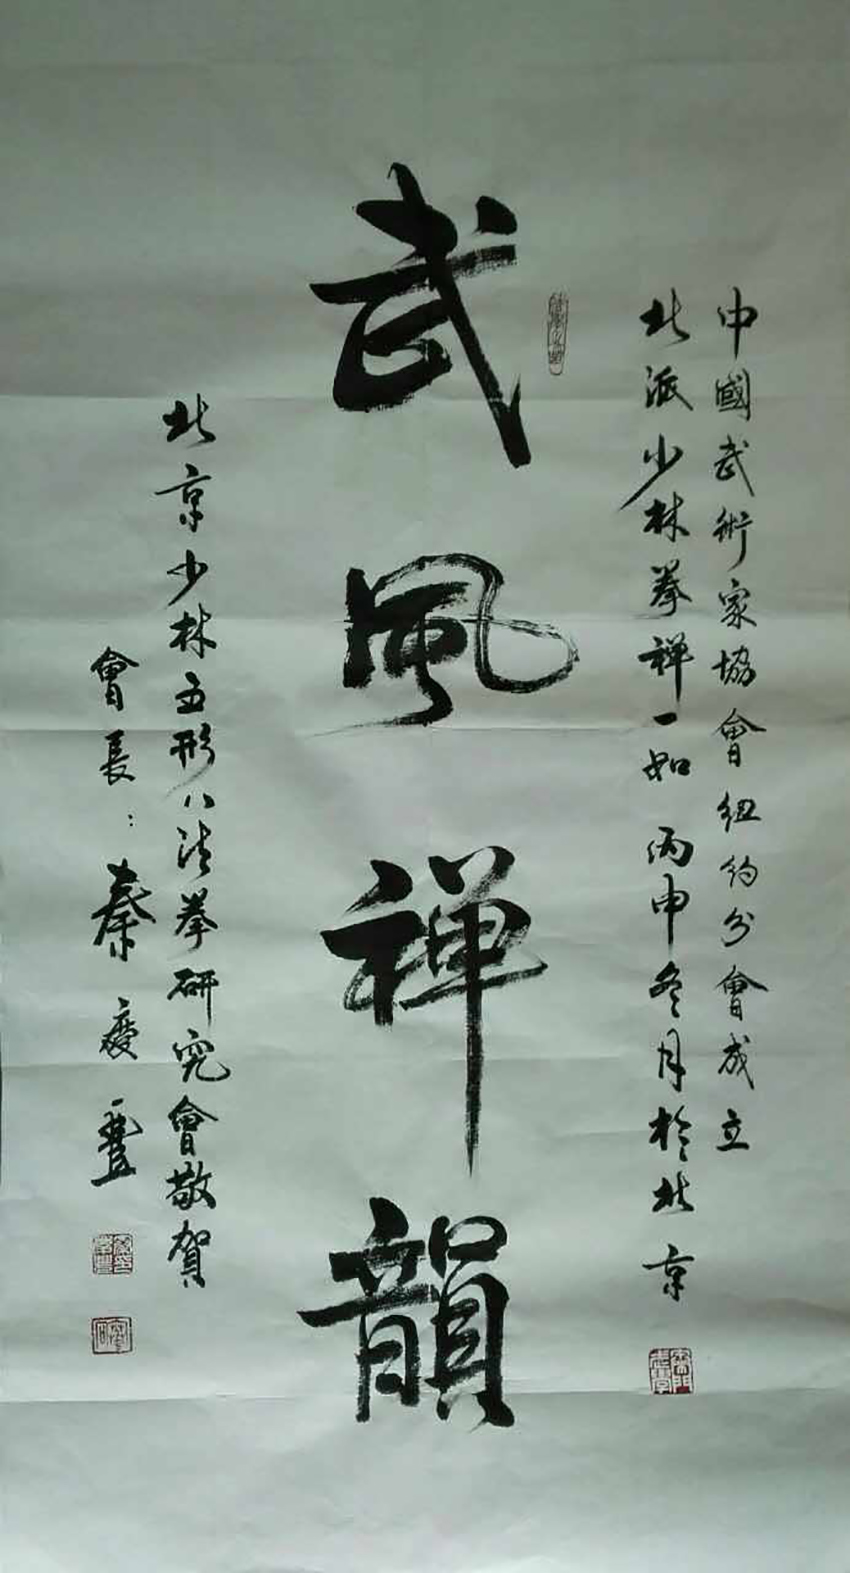 中國武術家協會紐約分會成立
北派少林拳禪一如 丙申冬月於北京
武風禪韻
北京少林五形八法拳研究會敬賀
會長：秦慶豐